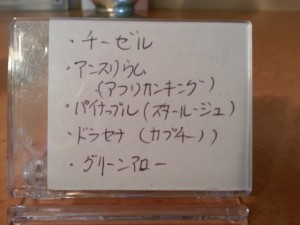 ・チーゼル
・アンスリウム
(アフリカンキング)
・パイナップル(スタールージュ)
・ドラセナ(カプチーノ)
・グリーンアロー